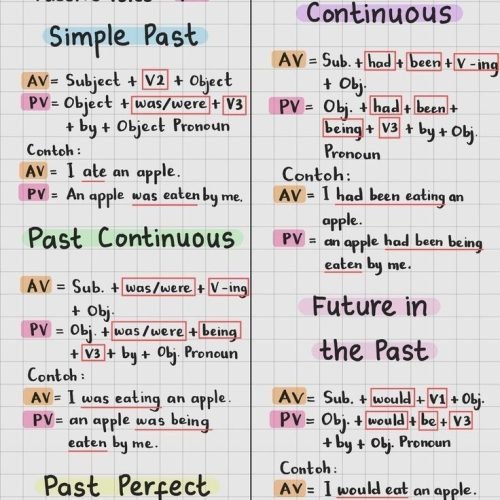 Simple Past
AV = Subject + V2 + Object
PV = Object + was/were + V3
+ by + Object Pronoun
Contoh:
AV = I ate an apple.
PV = An apple was eaten by me.
Past Continuous
AV = Sub. + was/were + V-ing
+ Obj.
PV = Obj. + was/were + being
+ V3 + by + Obj. Pronoun
Contoh:
AV = I was eating an apple.
PV = an apple was being
eaten by me.
Past Perfect
Continuous
AV = Sub. + had + been + V-ing
+ Obj.
PV = Obj. + had + been +
being + V3 + by + Obj.
Pronoun
Contoh:
AV = I had been eating an
apple.
PV = an apple had been being
eaten by me.
Future in
the Past
AV = Sub. + would + V1 + Obj.
PV = Obj. + would + be + V3
+ by + Obj. Pronoun
Contoh:
AV = I would eat an apple.